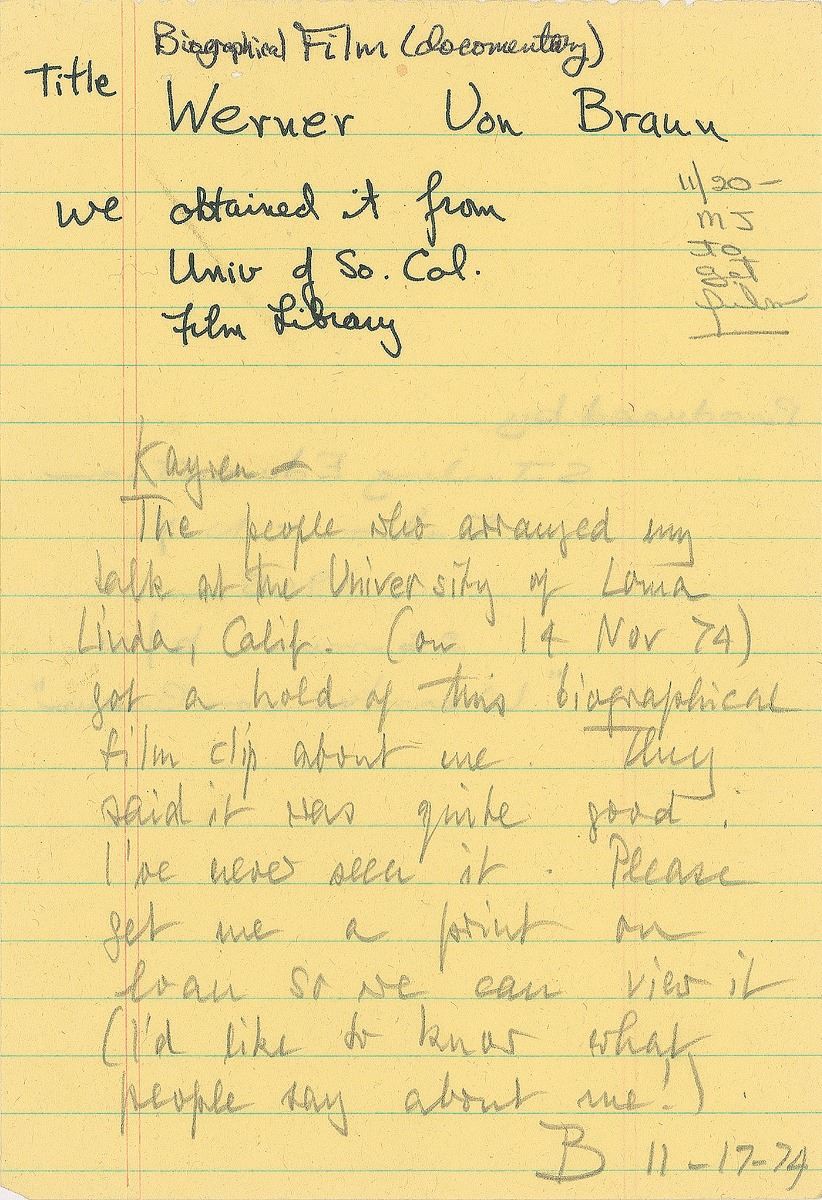 Biographical Film (documentary)
Title
Werner Von Braun
we obtained it from
Univ of So. Cal.
Film Library
11/20 -
MJ
to
get
film
Kayren -
The people who arranged my
talk at the University of Loma
Linda, Calif. (on 14 Nov 74)
got a hold of this biographical
film clip about me. They
said it was quite good.
I've never seen it. Please
get me a print on
loan so we can view it
(I'd like to know what
people say about me!)
B 11-17-74
Produced by